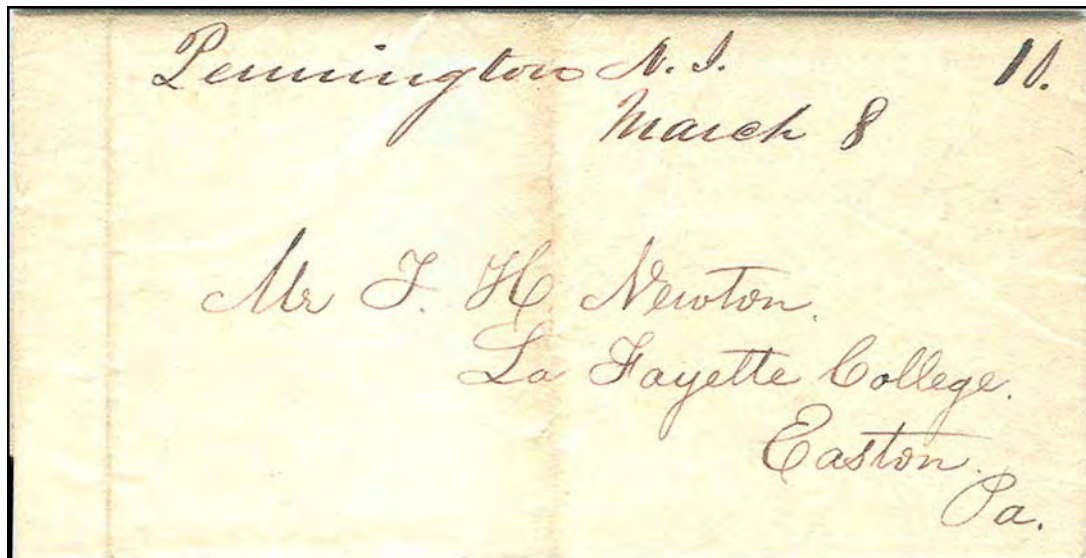 Pennington N. J. 10.
March 8
Mr F. H Newton.
La Fayette College.
Easton.
Pa.